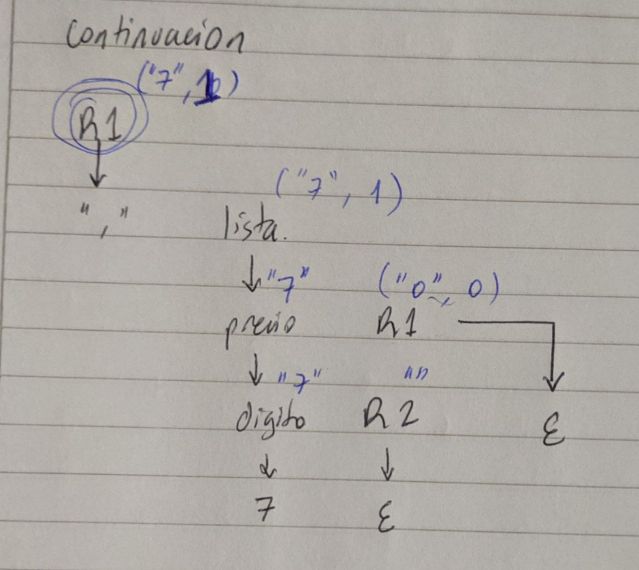 continuacion
("7", 1)
R1
("7", 1)
"," lista.
"7" ("0", 0)
precio R1
"7" ""
digito R2 ε
7 ε